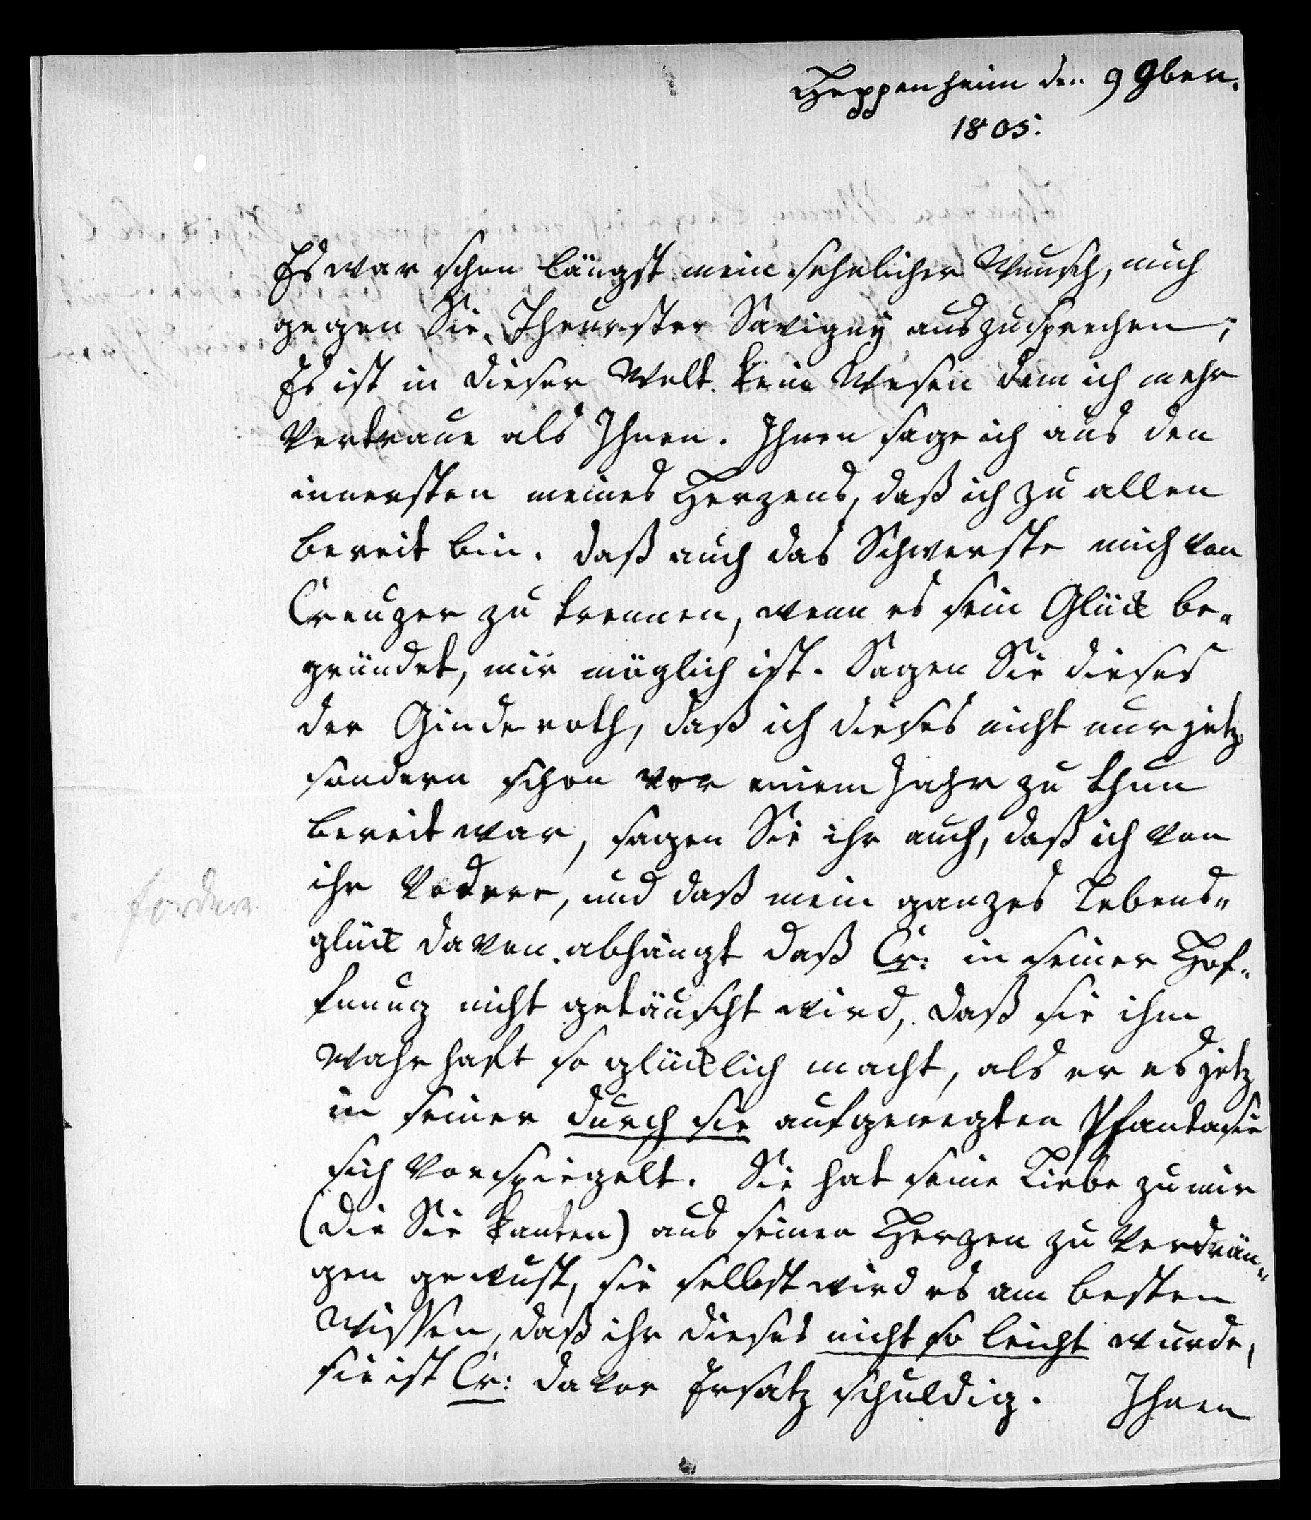 Heppenheim den 9 9ben.
1805.
Es war schon längst mein sehnlicher Wunsch, mich
gegen Sie, Theurster Savigny auszusprechen;
Es ist in dieser Welt kein Wesen dem ich mehr
Vertraue als Ihnen. Ihnen sage ich aus den
innersten meines Herzens, daß ich zu allen
bereit bin. daß auch das Schwerste mich von
Creuzer zu trennen, wenn es sein Glück be„
gründet, mir möglich ist. Sagen Sie dieses
der Ginderoth, daß ich dieses nicht nur jetz
sondern schon vor einem Jahr zu thun
bereit war, sagen Sie ihr auch, daß ich von
ihr Vodere, und daß mein ganzes Lebens„
fordere
glück davon abhängt daß Cr: in seiner Hof„
fnung nicht getäuscht wird, daß sie ihn
Wahrhaft so glücklich macht, als er es jetz
in seiner durch sie aufgeregten Phantasie
sich Vorspiegelt. Sie hat seine Liebe zu mir
(die Sie kanten) aus seinen Herzen zu Verdrän„
gen gewust, sie selbst wird es am besten
Wissen, daß ihr dieses nicht so leicht wurde,
sie ist Cr: davor Ersatz schuldig. Ihnen